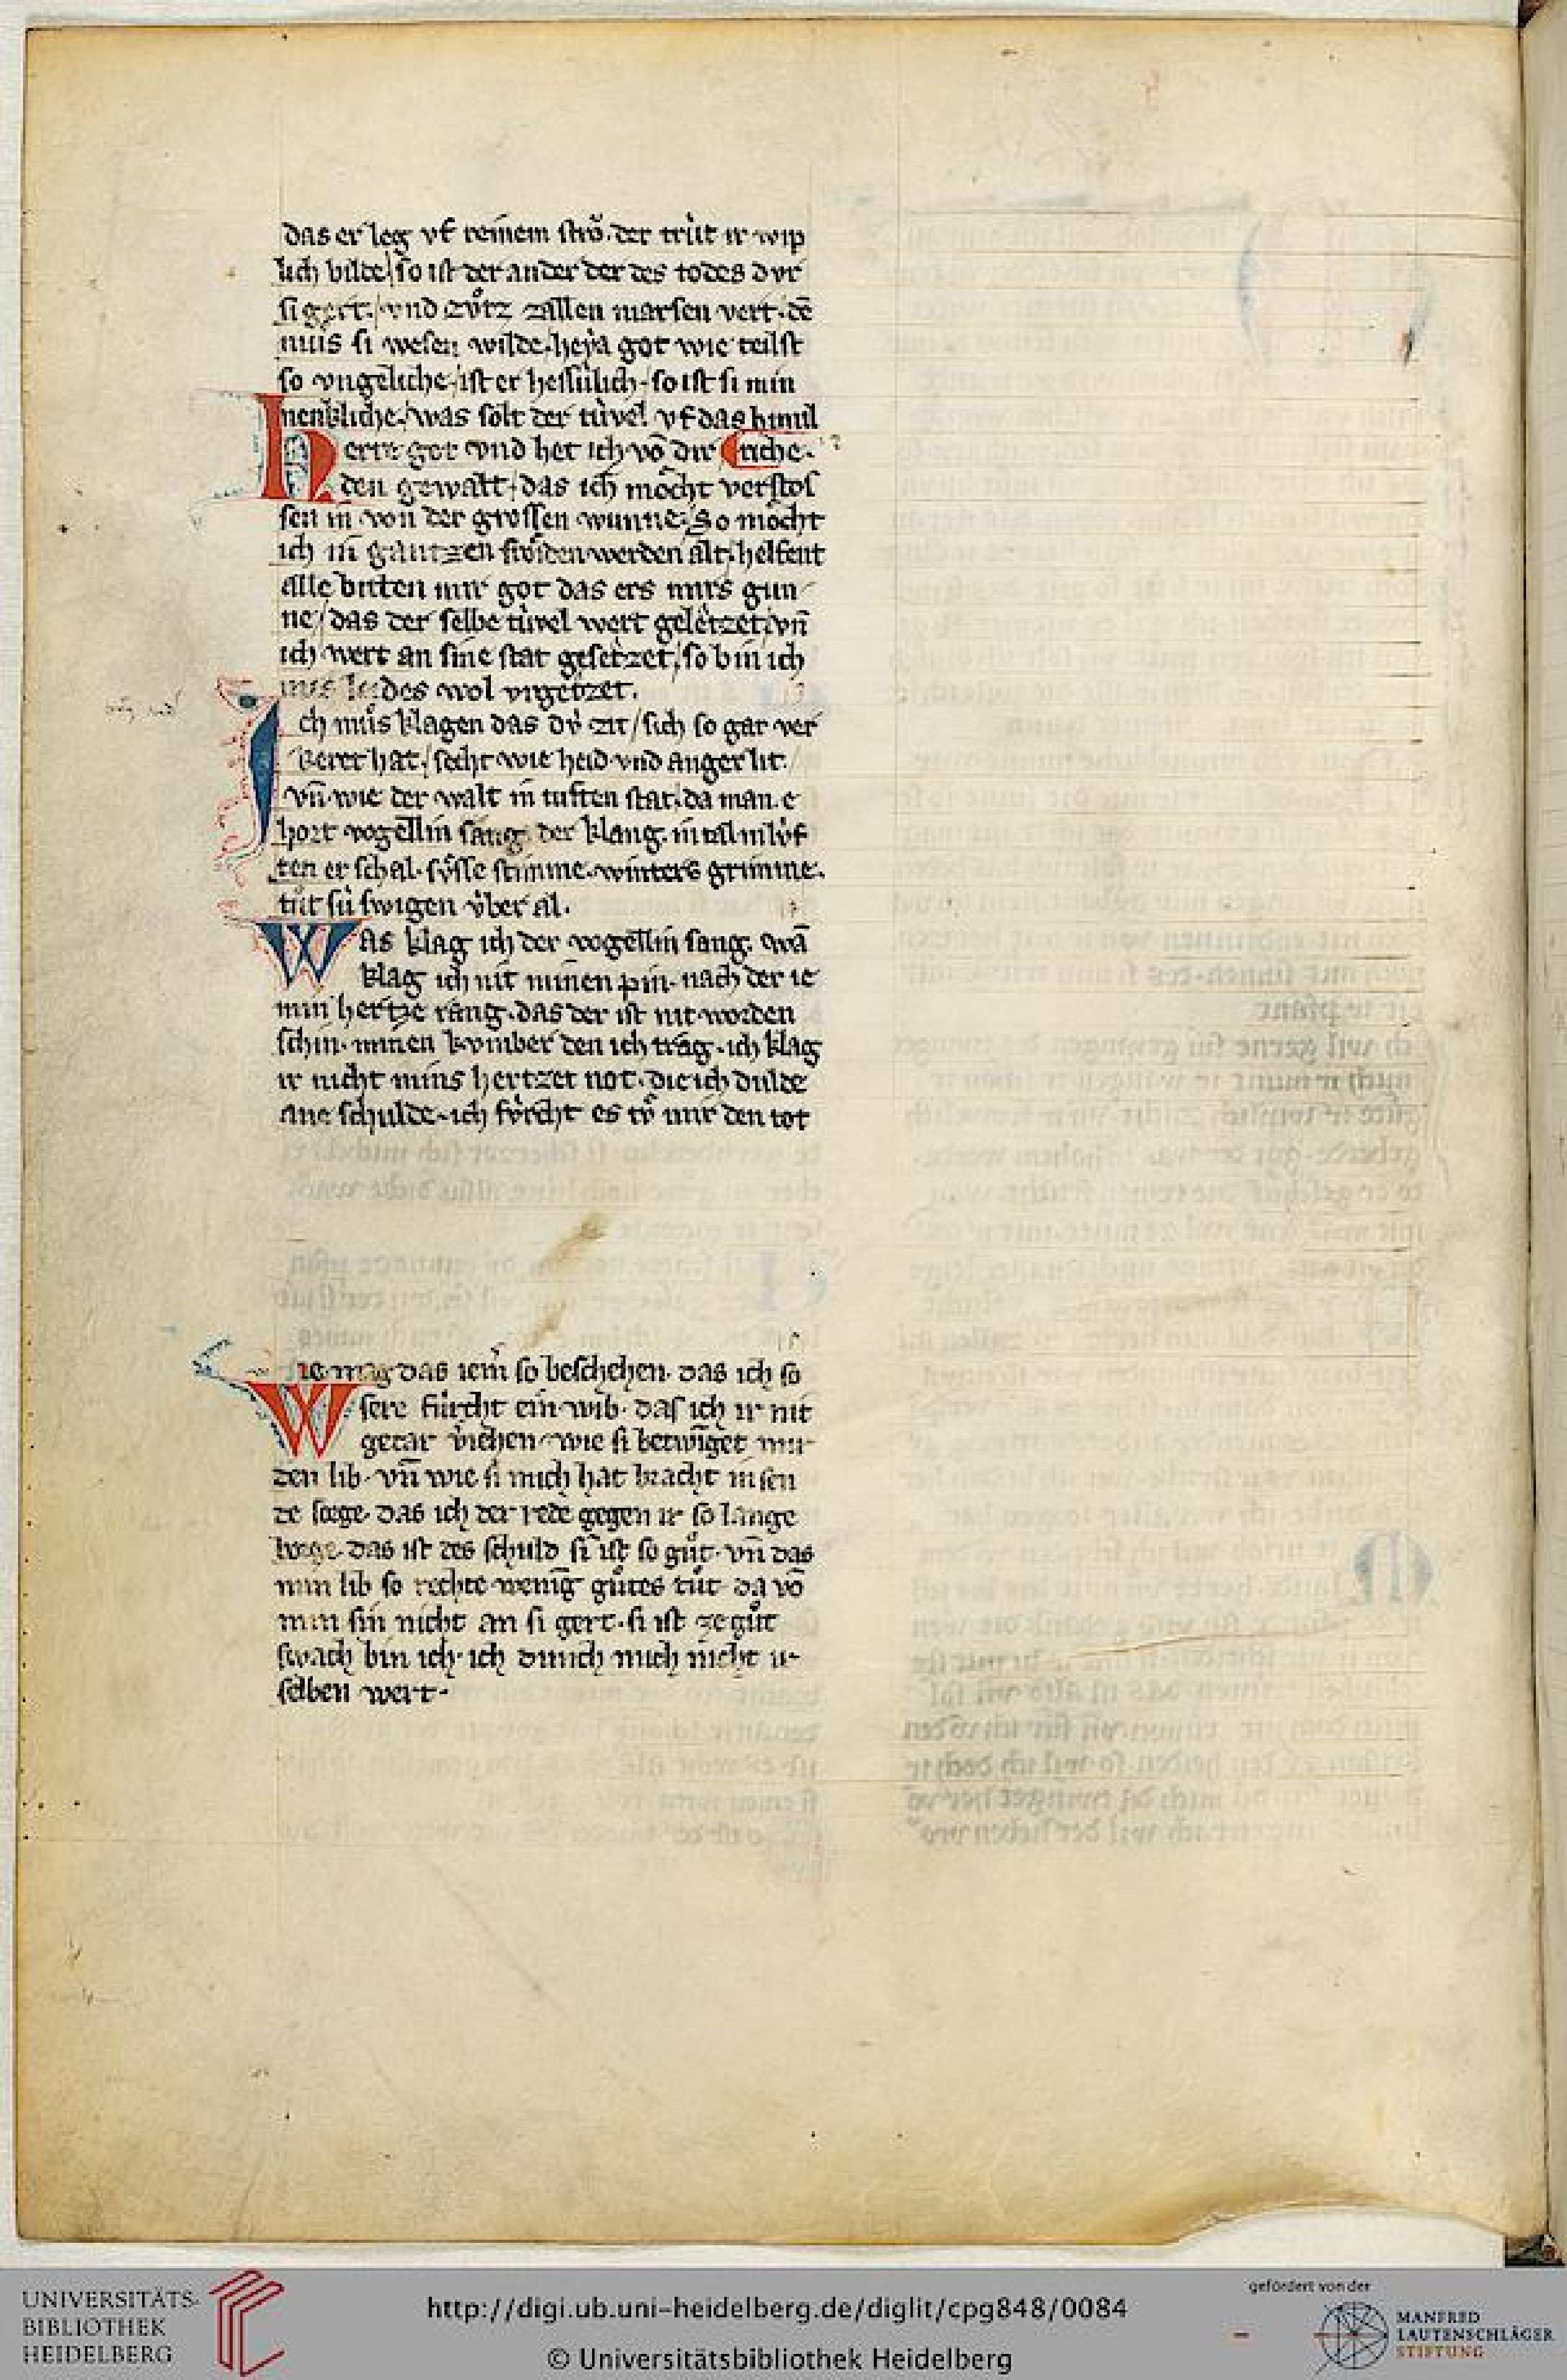 das er leg vf reinem stro. der trut ir wip
lich bilde / so ist der ander der des todes dvr
si gert. / vnd zvͦtz zallen marsen vert. dē
muͤs si wesen wilde. heya got wie teilst
so vngeliche / ist er hessúlich. so ist si min
nenkliche. was solt der túvel vf das himil
Herre got vnd het ich vō dir riche.
den gewalt / das ich mocht verstos
sen in von der grossen wunne. So mocht
ich in gantzen froͤiden werden alt. helfent
alle bitten mir got das ers mirs gun
ne / das der selbe túvel wert geletzet. vn̄
ich wert an sine stat gesetzet / so bin ich
mis leides wol vrgetzet.
Ich muͦs klagen das dv́ zit / sich so gar ver
keret hat / secht wie heid vnd anger lit.
vn̄ wie der walt in tuften stat. da man e
hort vogellin sang. der klang. in tal in lv́f
ten er schal. svͤsse stimme. winters grimme.
tuͦt sú swigen v́ber al.
Was klag ich der vogellin sang. wā
klag ich nit minen pin. nach der ie
min hertze rang. das der ist nit worden
schin. minen komber den ich trag. ich klag
ir nicht mins hertzet not. die ich dulde
ane schulde. ich fv́rcht es tvͦ mir den tot
Wie mag das iem̄ so beschehen. das ich so
sere fúrcht ein wib. das ich ir nit
getar v́iehen. wie si betwinget mir
den lib. vn̄ wie si mich hat bracht in sen
de sorge. das ich der rede gegen ir so lange
borge. das ist des schuld si ist so guͦt. vn̄ das
min lib so rechte wenig guͦtes tuͦt. da vō
min sin nicht an si gert. si ist ze guͦt
swach bin ich. ich dunch mich nicht ir
selben wert.
UNIVERSITÄTS-
BIBLIOTHEK
HEIDELBERG
http://digi.ub.uni-heidelberg.de/diglit/cpg848/0084
© Universitätsbibliothek Heidelberg
gefördert von der
MANFRED
LAUTENSCHLÄGER
STIFTUNG